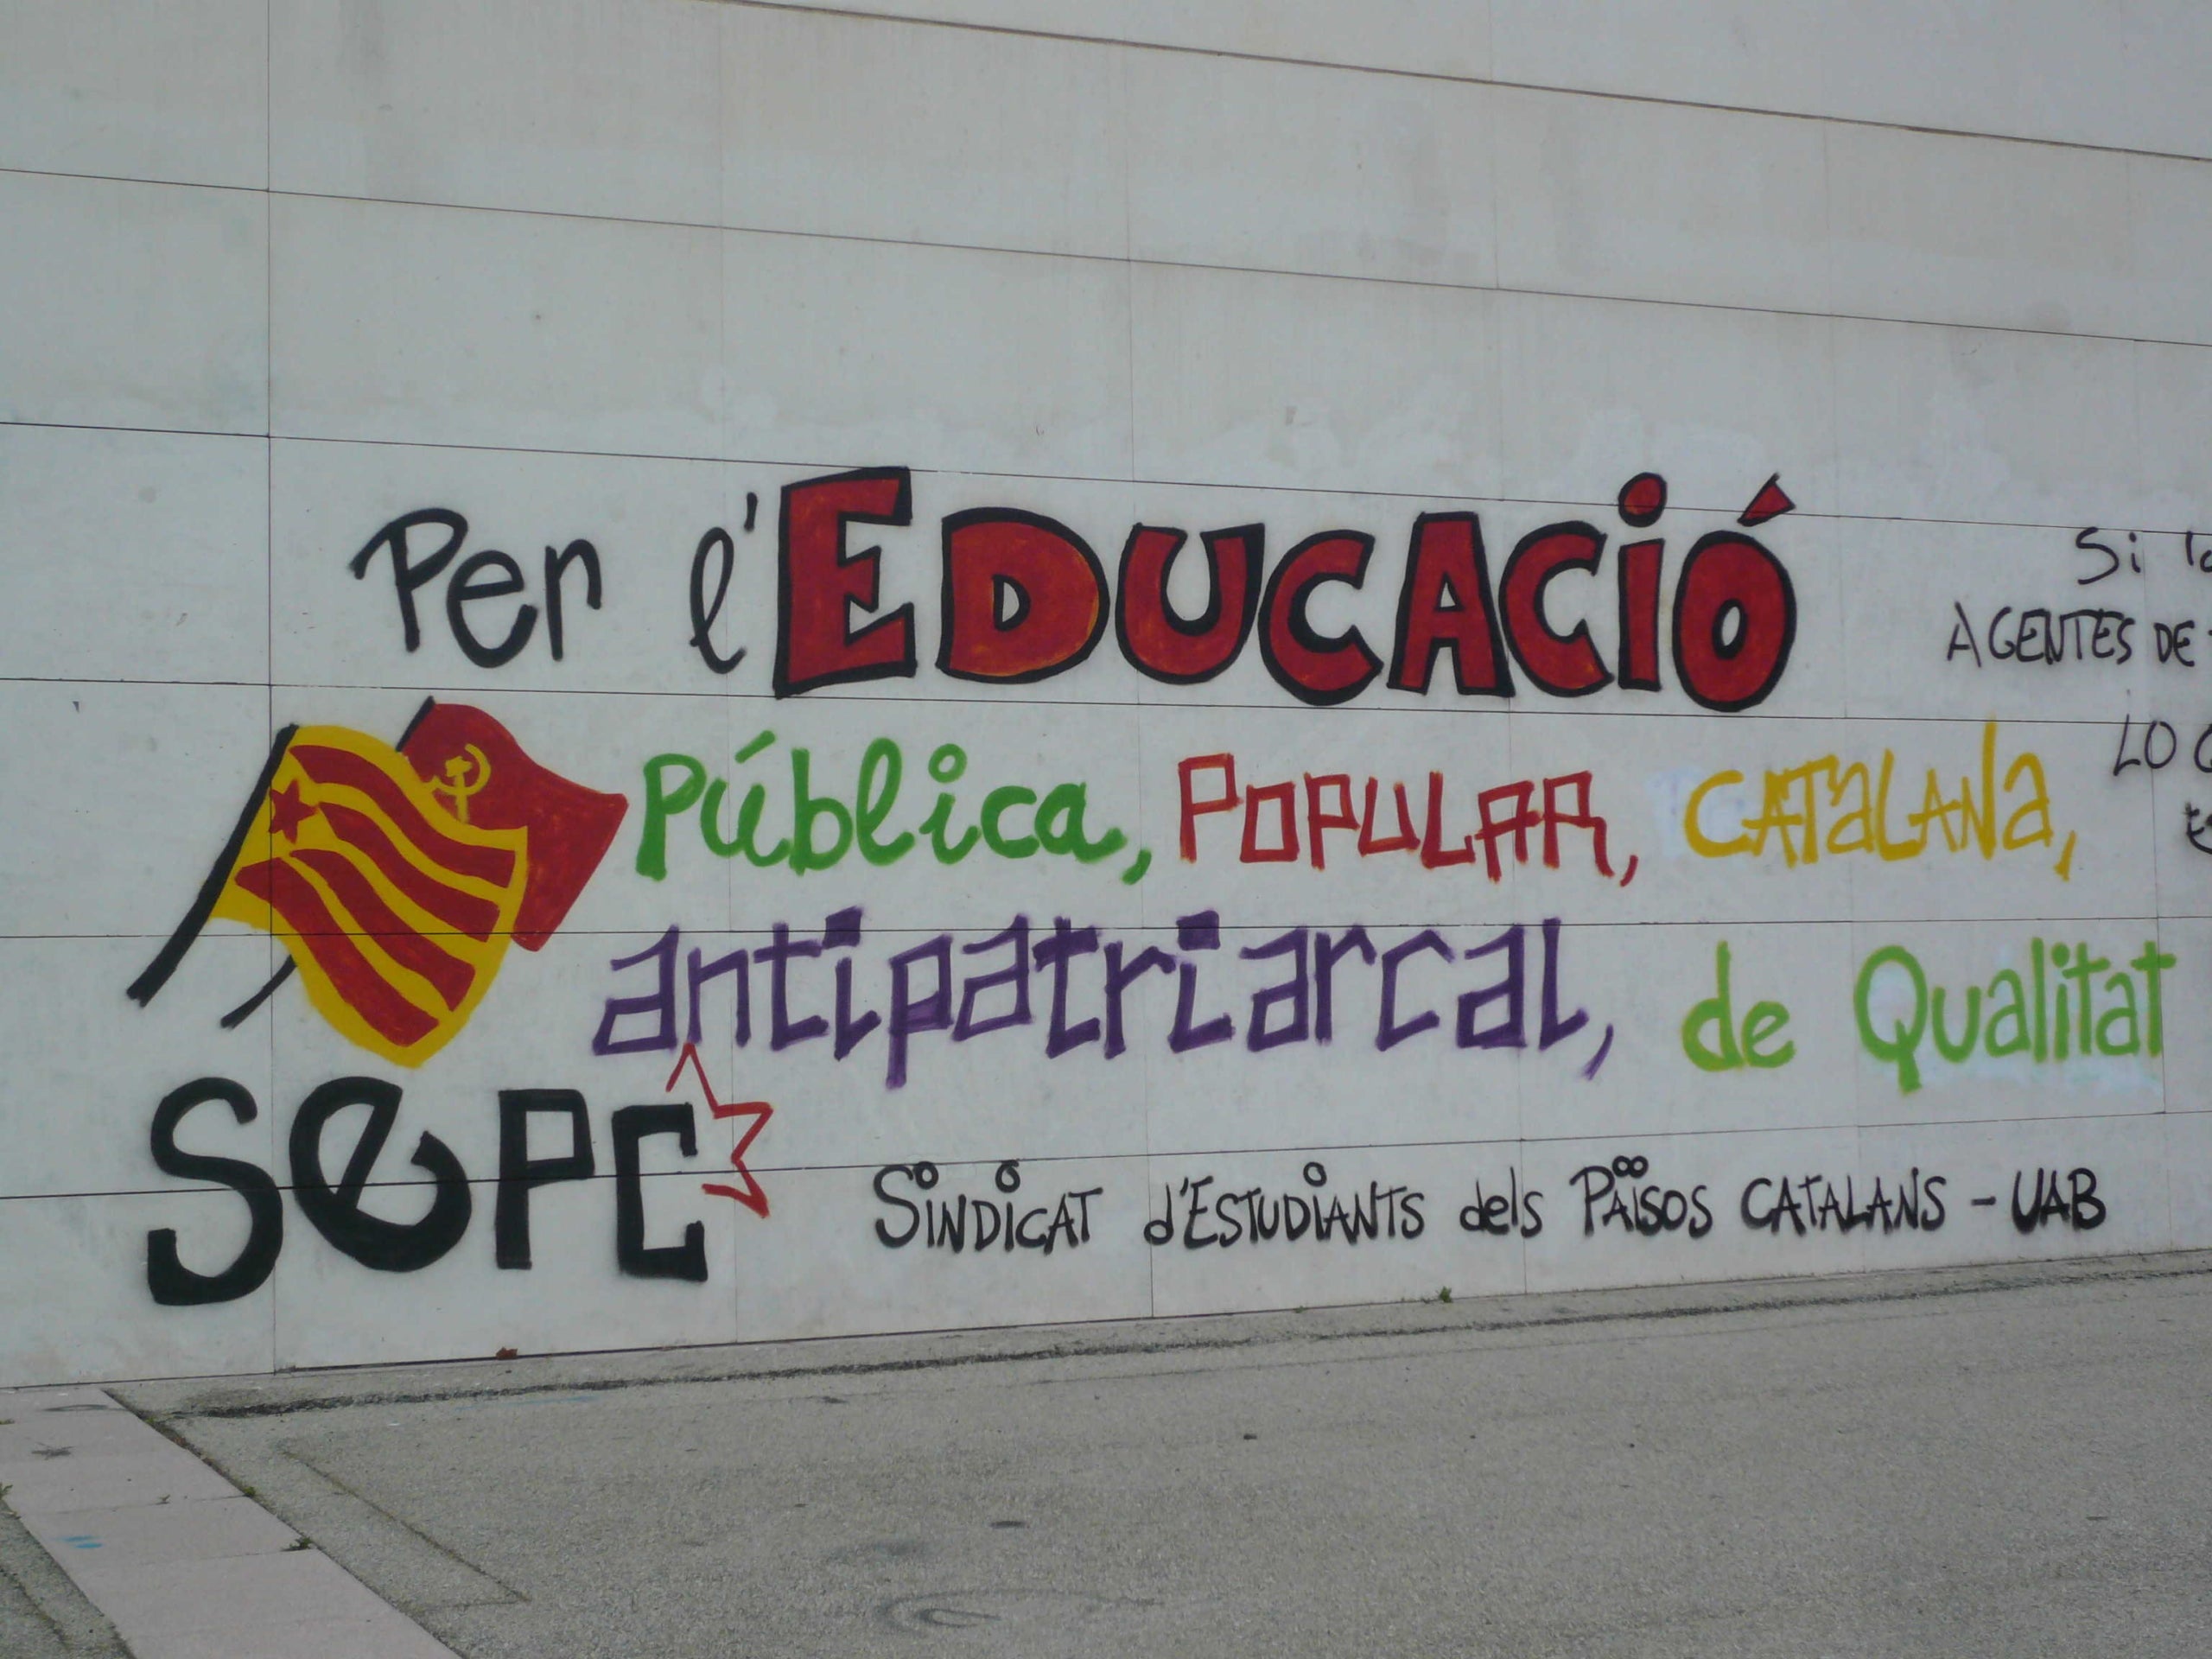 Per l'Educació
Pública, Popular, Catalana,
antipatriarcal, de Qualitat
SEPC
Sindicat d'Estudiants dels Països Catalans - UAB
Si
AGENTES DE
LO